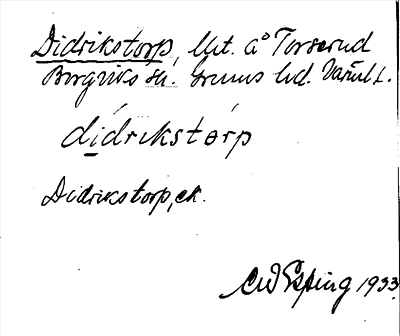 Didrikstorp, lht. å Torserud
Borgviks sn. Grums hd. Värml.
dídrikstòrp
Didrikstorp, ek.
CW Esping 1933.